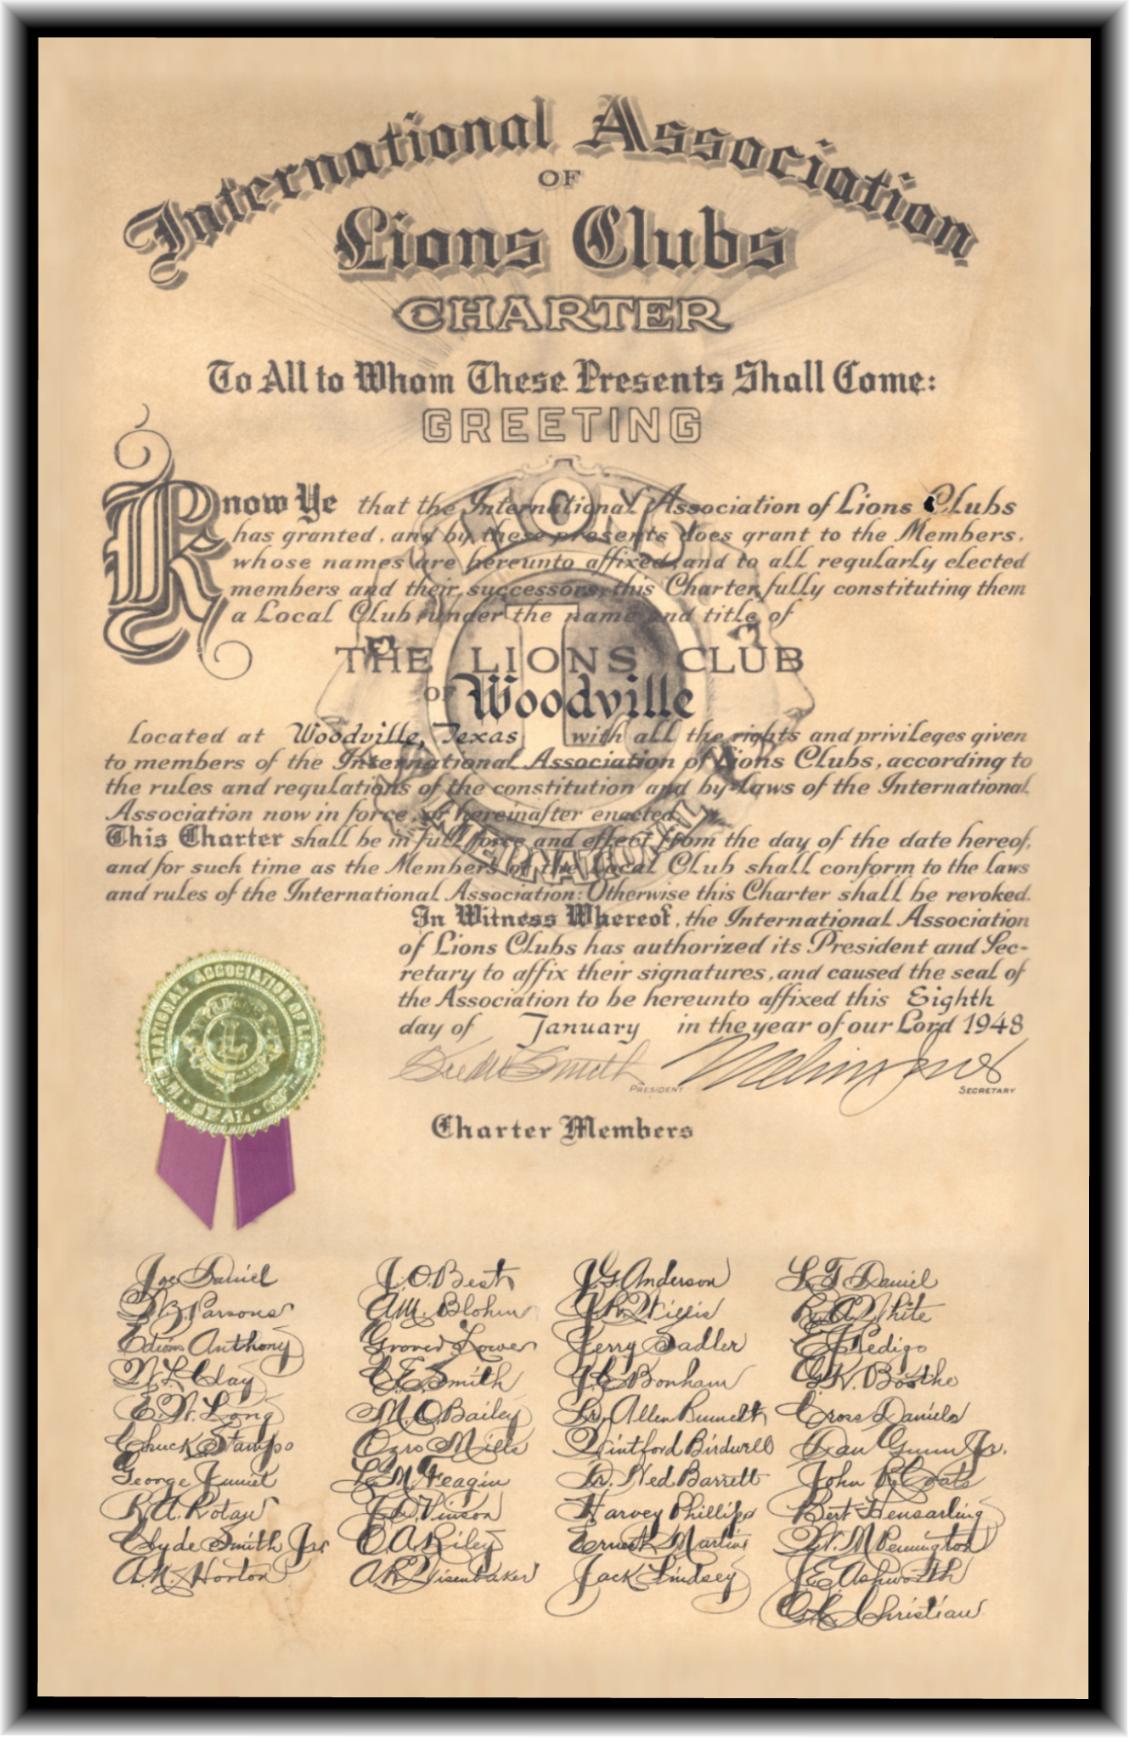 International Association
OF
Lions Clubs
CHARTER
To All to Whom These Presents Shall Come:
GREETING
Know Ye that the International Association of Lions Clubs
has granted, and by these presents does grant to the Members,
whose names are hereunto affixed, and to all regularly elected
members and their successors, this Charter, fully constituting them
a Local Club under the name and title of
THE LIONS CLUB
OF Woodville
Located at Woodville, Texas with all the rights and privileges given
to members of the International Association of Lions Clubs, according to
the rules and regulations of the constitution and by-laws of the International
Association now in force, or hereinafter enacted.
This Charter shall be in full force and effect from the day of the date hereof,
and for such time as the Members of the Local Club shall conform to the laws
and rules of the International Association: Otherwise this Charter shall be revoked.
In Witness Whereof, the International Association
of Lions Clubs has authorized its President and Sec-
retary to affix their signatures, and caused the seal of
the Association to be hereunto affixed this Eighth
day of January in the year of our Lord 1948
Smith Melvin Jones
PRESIDENT SECRETARY
LIONS
L
INTERNATIONAL
INTERNATIONAL ASSOCIATION OF LIONS
L
SEAL
Charter Members
Joe Daniel J.O. Best J.G. Anderson L.T. Daniel
Parsons A.M. Blohm Willis R.A. White
Edison Anthony Grover Lower Jerry Sadler Pedigo
Clay C.E. Smith Bonham G.K. Boothe
E.W. Long M.O. Bailey Dr. Allen Cross Daniels
Chuck Stamps Ozro Mills Vintford Birdwell Dan Gunn Jr.
George L.M. Feagin Dr. Ned Barrett John R. Coats
R.A. Rotan Vinson Harvey Phillips Bert Hensarling
Clyde Smith Jr. O.A. Riley Ernest Martin W.M. Pennington
A.N. Horton A.R. Wisenbaker Jack Lindsey J.E. Ashworth
Christian